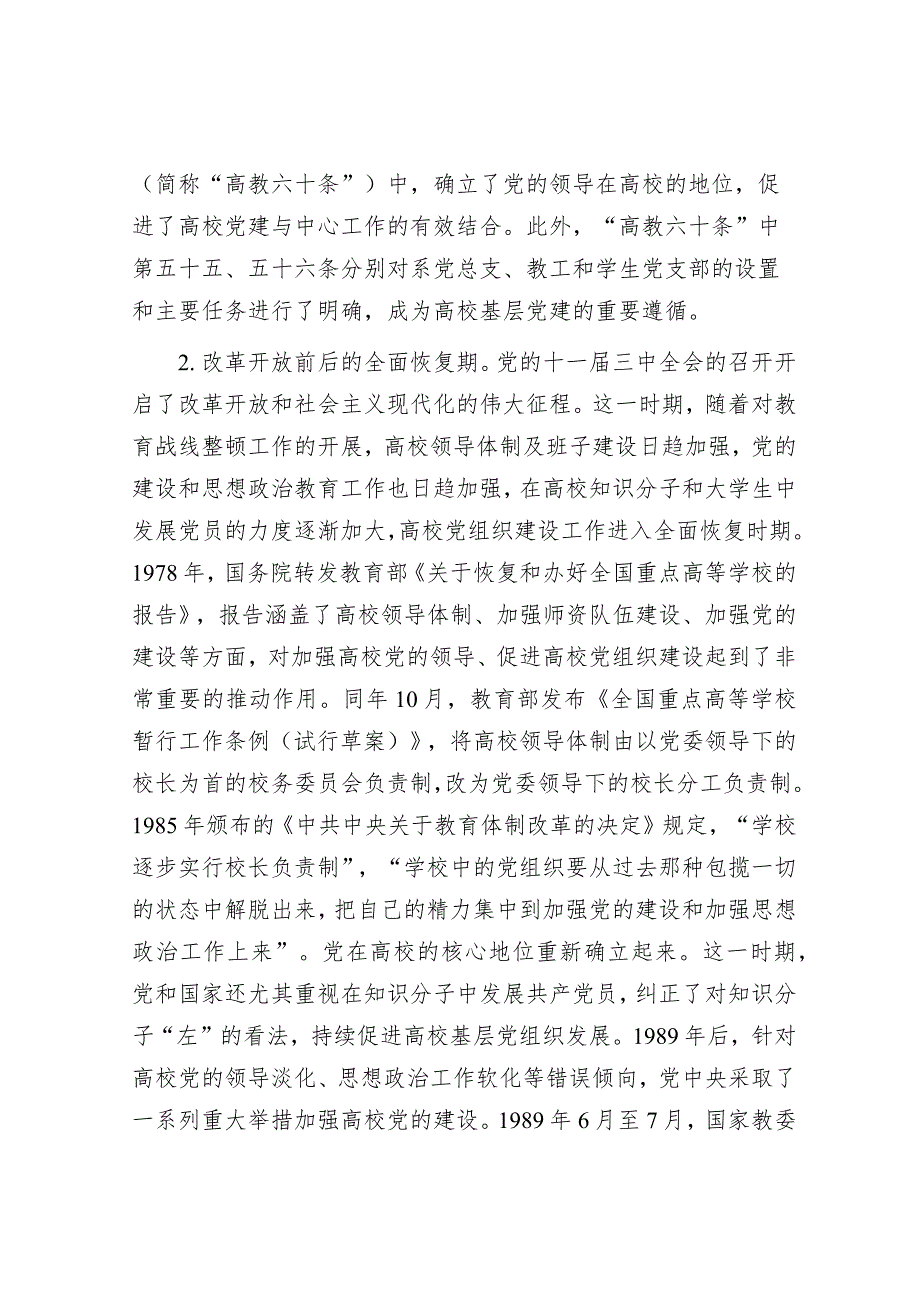 （简称“高教六十条”）中，确立了党的领导在高校的地位，促
进了高校党建与中心工作的有效结合。此外，“高教六十条”中
第五十五、五十六条分别对系党总支、教工和学生党支部的设置
和主要任务进行了明确，成为高校基层党建的重要遵循。
2. 改革开放前后的全面恢复期。党的十一届三中全会的召开开
启了改革开放和社会主义现代化的伟大征程。这一时期，随着对教
育战线整顿工作的开展，高校领导体制及班子建设日趋加强，党的
建设和思想政治教育工作也日趋加强，在高校知识分子和大学生中
发展党员的力度逐渐加大，高校党组织建设工作进入全面恢复时期。
1978 年，国务院转发教育部《关于恢复和办好全国重点高等学校的
报告》，报告涵盖了高校领导体制、加强师资队伍建设、加强党的
建设等方面，对加强高校党的领导、促进高校党组织建设起到了非
常重要的推动作用。同年 10 月，教育部发布《全国重点高等学校
暂行工作条例（试行草案）》，将高校领导体制由以党委领导下的
校长为首的校务委员会负责制，改为党委领导下的校长分工负责制。
1985 年颁布的《中共中央关于教育体制改革的决定》规定，“学校
逐步实行校长负责制”，“学校中的党组织要从过去那种包揽一切
的状态中解脱出来，把自己的精力集中到加强党的建设和加强思想
政治工作上来”。党在高校的核心地位重新确立起来。这一时期，
党和国家还尤其重视在知识分子中发展共产党员，纠正了对知识分
子“左”的看法，持续促进高校基层党组织发展。1989 年后，针对
高校党的领导淡化、思想政治工作软化等错误倾向，党中央采取了
一系列重大举措加强高校党的建设。1989 年 6 月至 7 月，国家教委